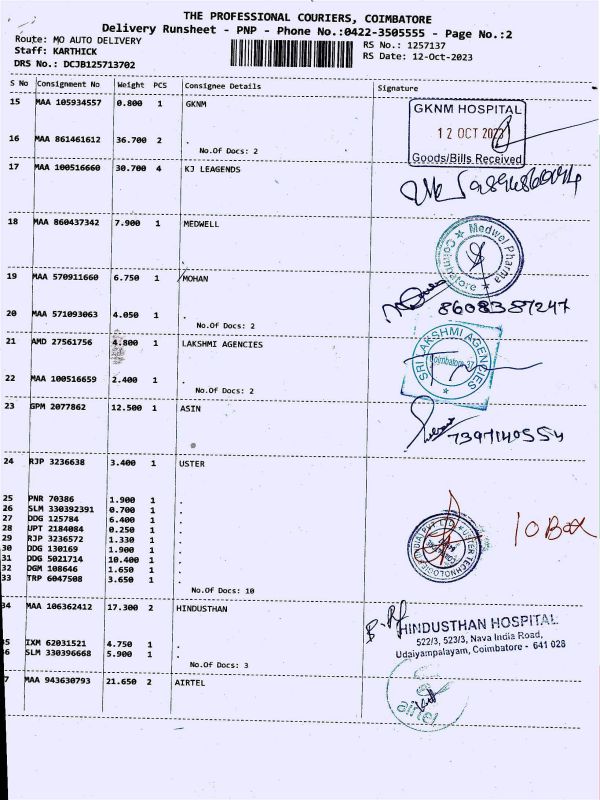 THE PROFESSIONAL COURIERS, COIMBATORE
Delivery Runsheet - PNP - Phone No.:0422-3505555 - Page No.:2
Route: MO AUTO DELIVERY
RS No.: 1257137
Staff: KARTHICK
RS Date: 12-Oct-2023
DRS No.: DCJB125713702
S No Consignment No Weight PCS Consignee Details Signature
15 MAA 105934557 0.800 1 GKNM
GKNM HOSPITAL
12 OCT 2023
Goods/Bills Received
16 MAA 861461612 36.700 2 .
No.Of Docs: 2
17 MAA 100516660 30.700 4 KJ LEAGENDS
18 MAA 860437342 7.900 1 MEDWELL
Medwel Pharma
Coimbatore
19 MAA 570911660 6.750 1 MOHAN
8608387247
20 MAA 571093063 4.050 1 .
No.Of Docs: 2
21 AMD 27561756 4.800 1 LAKSHMI AGENCIES
SRI LAKSHMI AGENCIES
Coimbatore-37
22 MAA 100516659 2.400 1 .
No.Of Docs: 2
23 GPM 2077862 12.500 1 ASIN
7397140554
24 RJP 3236638 3.400 1 USTER
25 PNR 70386 1.900 1 .
26 SLM 330392391 0.700 1 .
27 DDG 125784 6.400 1 .
28 UPT 2184084 0.250 1 .
29 RJP 3236572 1.330 1 .
30 DDG 130169 1.900 1 .
31 DDG 5021714 10.400 1 .
32 DGM 108646 1.650 1 .
33 TRP 6047508 3.650 1 .
No.Of Docs: 10
10 Box
34 MAA 106362412 17.300 2 HINDUSTHAN
HINDUSTHAN HOSPITAL
522/3, 523/3, Nava India Road,
Udaiyampalayam, Coimbatore - 641 028
35 IXM 62031521 4.750 1 .
36 SLM 330396668 5.900 1 .
No.Of Docs: 3
7 MAA 943630793 21.650 2 AIRTEL
airtel